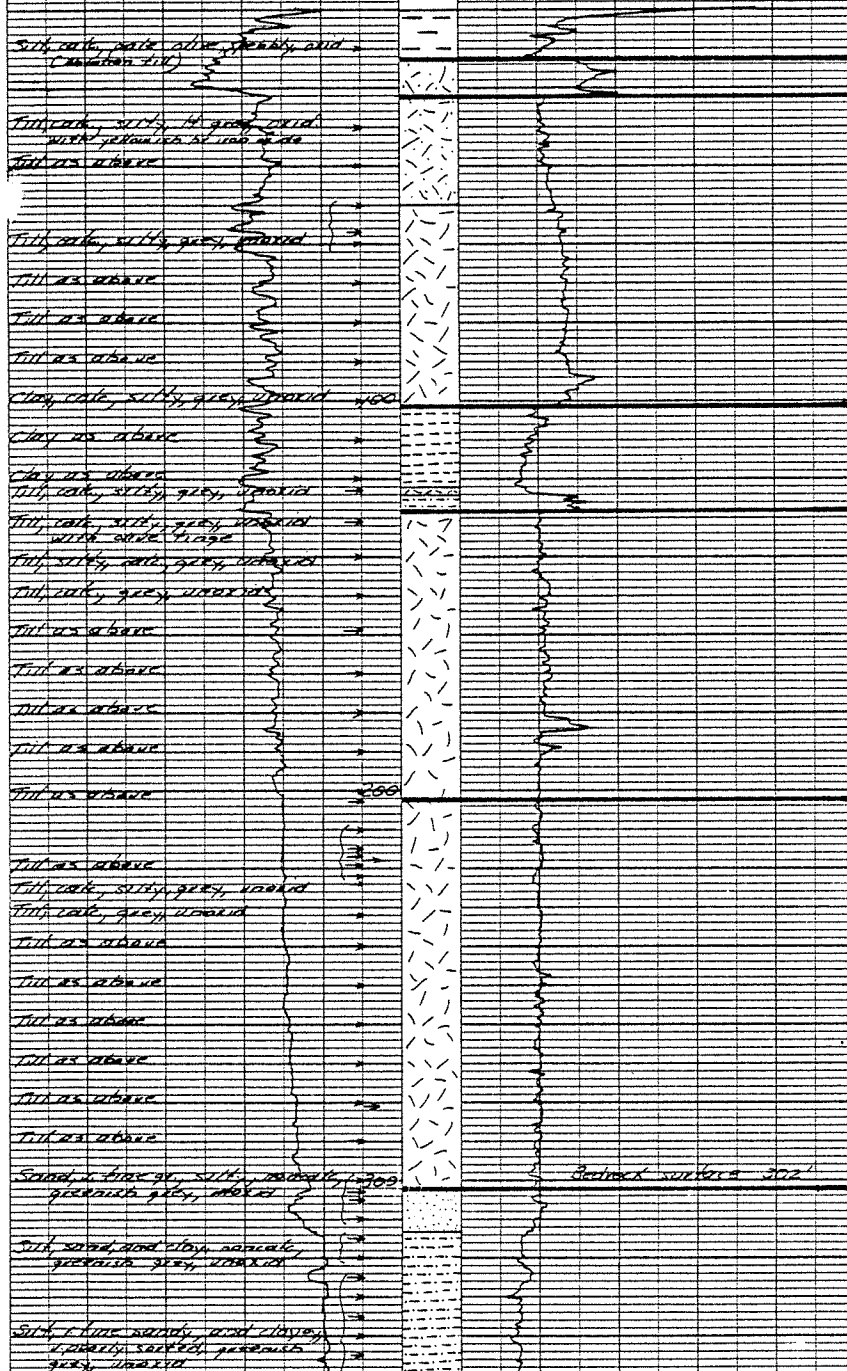 Silt, calc, pale olive, pebbly, oxid
(ablation till)
Till, calc, silty, lt grey, oxid
with yellowish br iron oxide
Till as above
Till, calc, silty, grey, unoxid
Till as above
Till as above
Till as above
Clay, calc, silty, grey, unoxid 100
Clay as above
Clay as above
Till, calc, silty, grey, unoxid
Till, calc, silty, grey, unoxid
with olive tinge
Till, silty, calc, grey, unoxid
Till, calc, grey, unoxid
Till as above
Till as above
Till as above
Till as above
Till as above 200
Till as above
Till, calc, silty, grey, unoxid
Till, calc, grey, unoxid
Till as above
Till as above
Till as above
Till as above
Till as above
Till as above
Sand, v fine gr, silty, noncalc, 300 Bedrock surface 302'
greenish grey, unoxid
Silt, sand, and clay, noncalc,
greenish grey, unoxid
Silt, v fine sandy, and clayey,
v poorly sorted, greenish
grey, unoxid